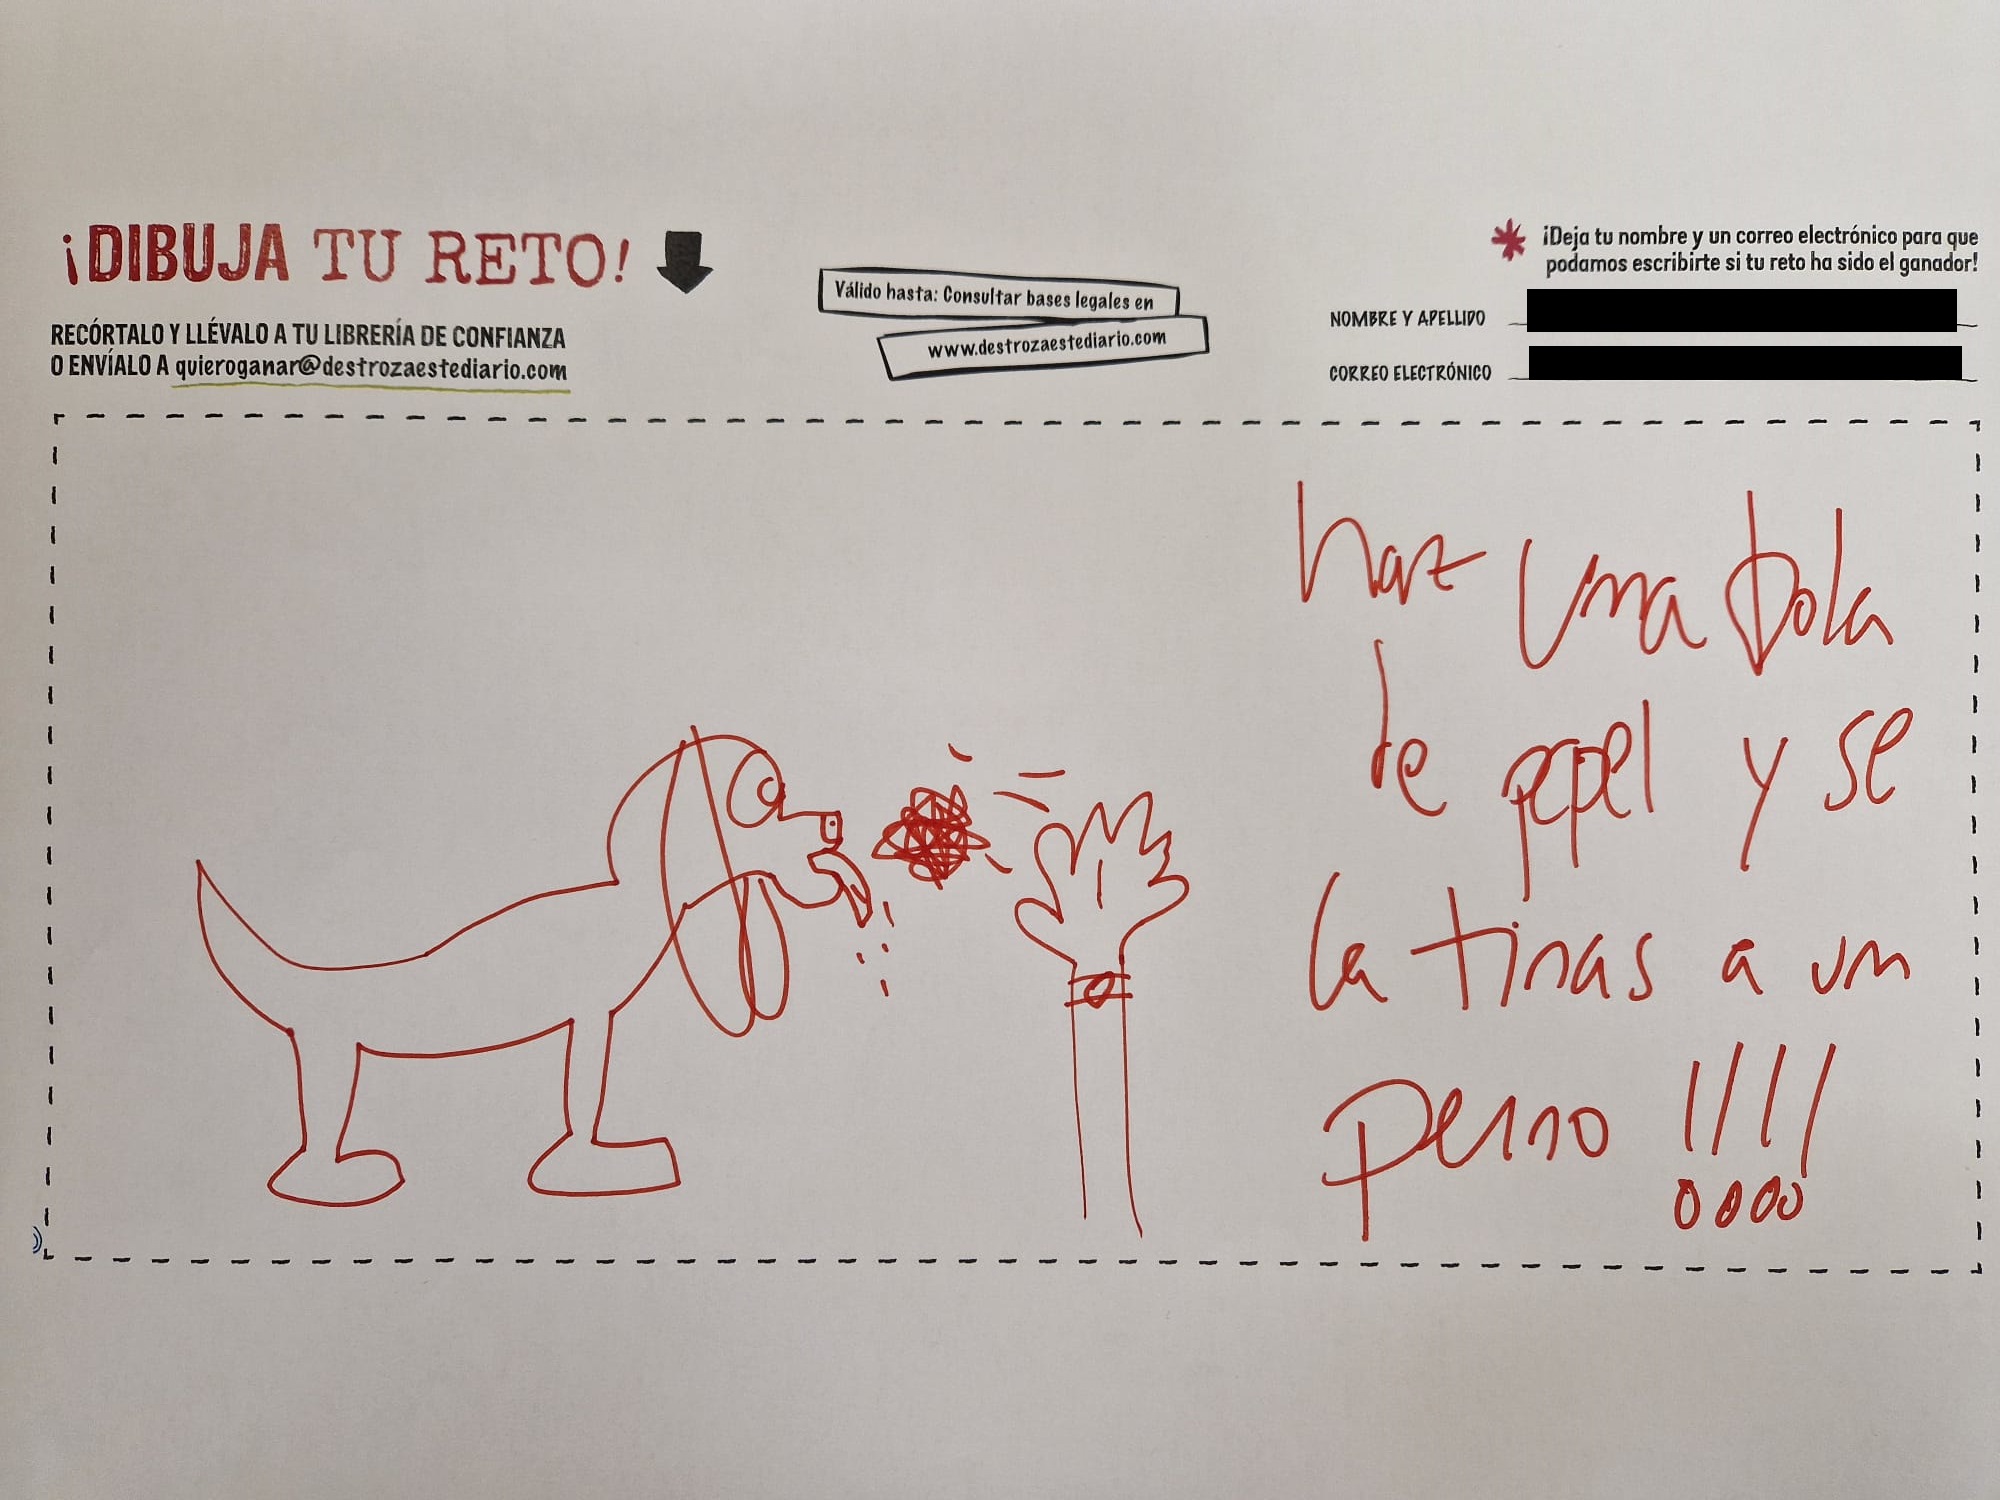 ¡DIBUJA TU RETO!
RECÓRTALO Y LLÉVALO A TU LIBRERÍA DE CONFIANZA
O ENVÍALO A quieroganar@destrozaestediario.com
Válido hasta: Consultar bases legales en
www.destrozaestediario.com
¡Deja tu nombre y un correo electrónico para que
podamos escribirte si tu reto ha sido el ganador!
NOMBRE Y APELLIDO
CORREO ELECTRÓNICO
haz una bola
de pepel y se
la tiras a un
perro !!!!